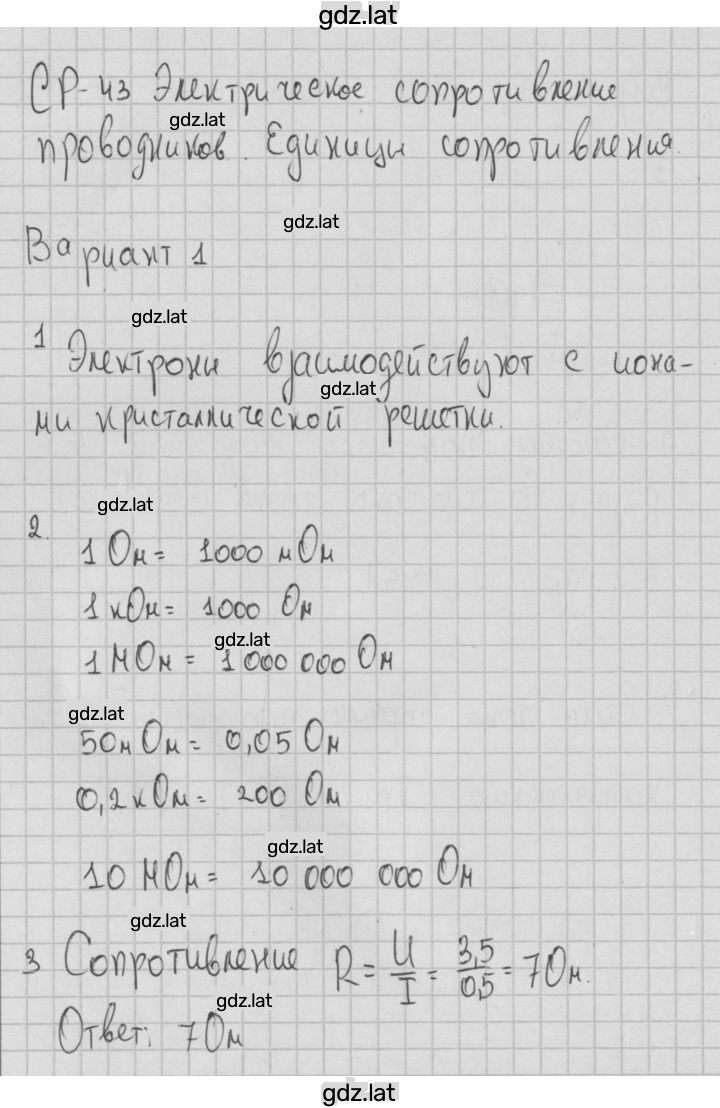 gdz.lat
СР-43 Электрическое сопротивление
gdz.lat
проводников. Единицы сопротивления.
gdz.lat
Вариант 1
gdz.lat
1 Электроны взаимодействуют с иона-
gdz.lat
ми кристаллической решетки.
gdz.lat
2. 1 Ом = 1000 мОм
1 кОм = 1000 Ом
gdz.lat
1 МОм = 1 000 000 Ом
gdz.lat
50 мОм = 0,05 Ом
0,2 кОм = 200 Ом
gdz.lat
10 МОм = 10 000 000 Ом
gdz.lat
3 Сопротивление R = U/I = 3,5/0,5 = 7 Ом.
gdz.lat
Ответ: 7 Ом
gdz.lat